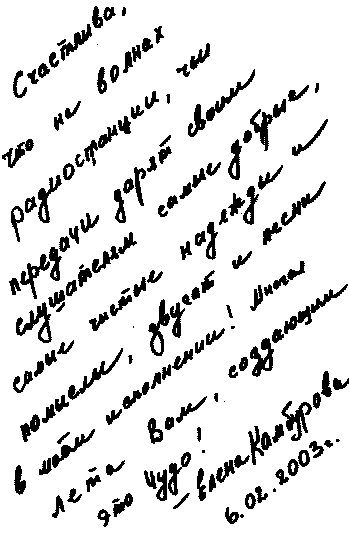 Счастлива,
что на волнах
радиостанции, чьи
передачи дарят своим
слушателям самые добрые,
самые чистые надежды и
помыслы, звучат и песни
в моём исполнении! Многая
лета Вам, создающим
это чудо!
– Елена Камбурова
6.02.2003г.